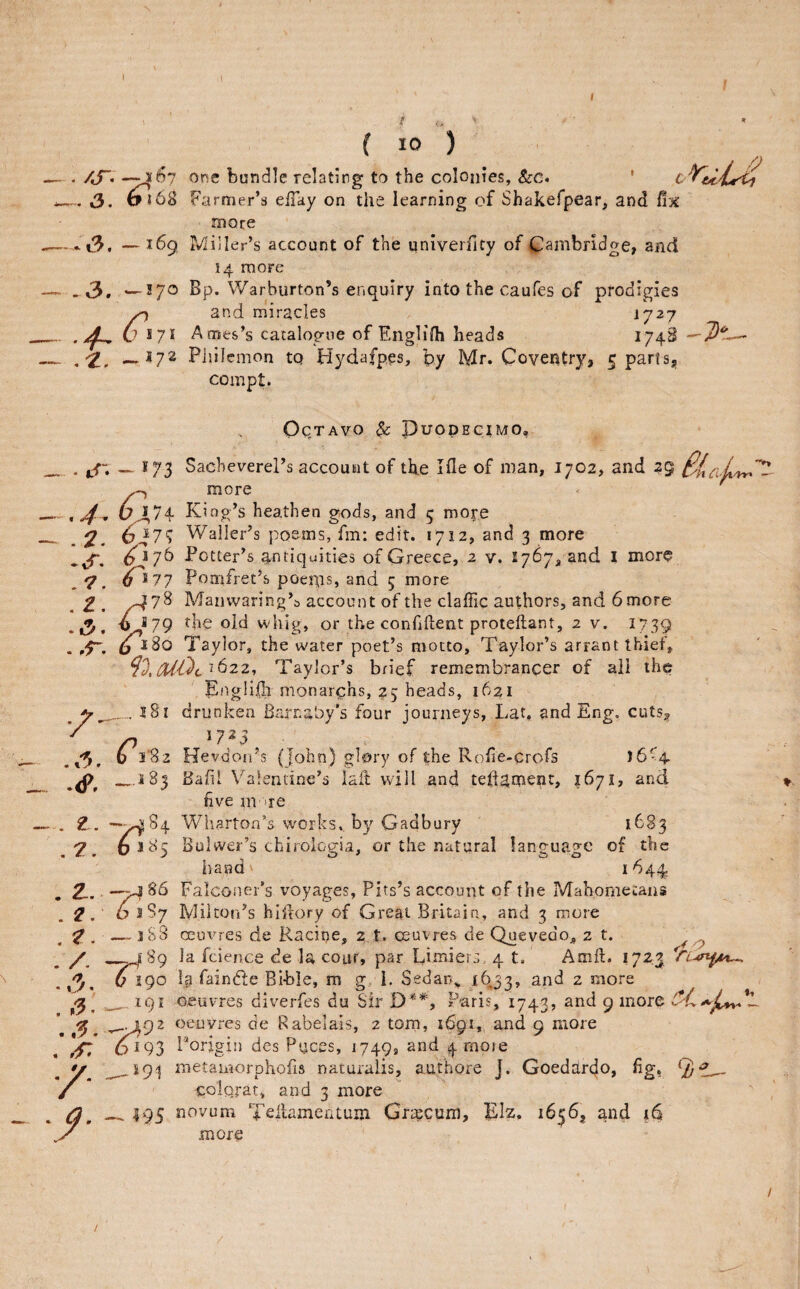 ( 10 )
— . 15. — 167 one bundle relating to the colonies, &c.
— . 3. 6 168 Farmer's essay on the learning of Shakespear, and six
more
— . 3. — 169 Miller's account of the university of Cambridge, and
14 more
— . 3. — 170 Bp. Warburton's enquiry into the causes of prodigies
and miracles 1727
— . 4. 6 171 Ames's catalogue of English heads 1748 — Do —
— . 2. — 172 Philemon to Hydaspes, by Mr. Coventry, 5 parts,
compt.
OCTAVO & DUODECIMO.
— . 5. — 173 Sacheverel's account of the Isle of man, 1702, and 29
more
— . 4. 6 174 King's heathen gods, and 5 more
— . 2. 6 175 Waller's poems, sm: edit. 1712, and 3 more
. 5. 6 176 Potter's antiquities of Greece, 2 v. 1767, and 1 more
. 2. 6 177 Pomfret's poems, and 5 more
. 2. — 178 Manwaring's account of the classic authors, and 6 more
. 3. 6 179 the old whig, or the consistent protestant, 2 v. 1739
. 5. 6 180 Taylor, the water poet's motto, Taylor's arrant thief,
1622, Taylor's brief remembrancer of all the
English monarchs, 25 heads, 1621
. 7. — 181 drunken Barnaby's four journeys, Lat. and Eng. cuts,
1723
— . 3. 6 182 Hevdon's (John) glory of the Rosie-cross 1664
— . — 183 Basil Valentine's last will and testament, 1671, and
five more
— . 2. — 184 Wharton's works, by Gadbury 1683
. 2. 6 185 Bulwer's chirologia, or the natural language of the
hand 1644
. 2. — 186 Falconer's voyages, Pits's account of the Mahometans
. 2. 6 187 Milton's history of Great Britain, and 3 more
. 2. — 188 œuvres de Racine, 2 t. œuvres de Quevedo, 2 t.
. 1. — 189 la science de la cour, par Limiers, 4 t. Amst. 1723
. 3. 6 190 la saincte Bible, m g. l. Sedan, 1633, and 2 more
. 3. — 191 oeuvres diverses du Sir D**, Paris, 1743, and 9 more
. 3. — 192 oeuvres de Rabelais, 2 tom, 1691, and 9 more
. 5. 6 193 l'origin des Puces, 1749, and 4 more
. — 194 metamorphosis naturalis, authore J. Goedardo, fig.
colorat, and 3 more
— . 9. — 195 novum Testamentum Græcum, Elz. 1656, and 16
more